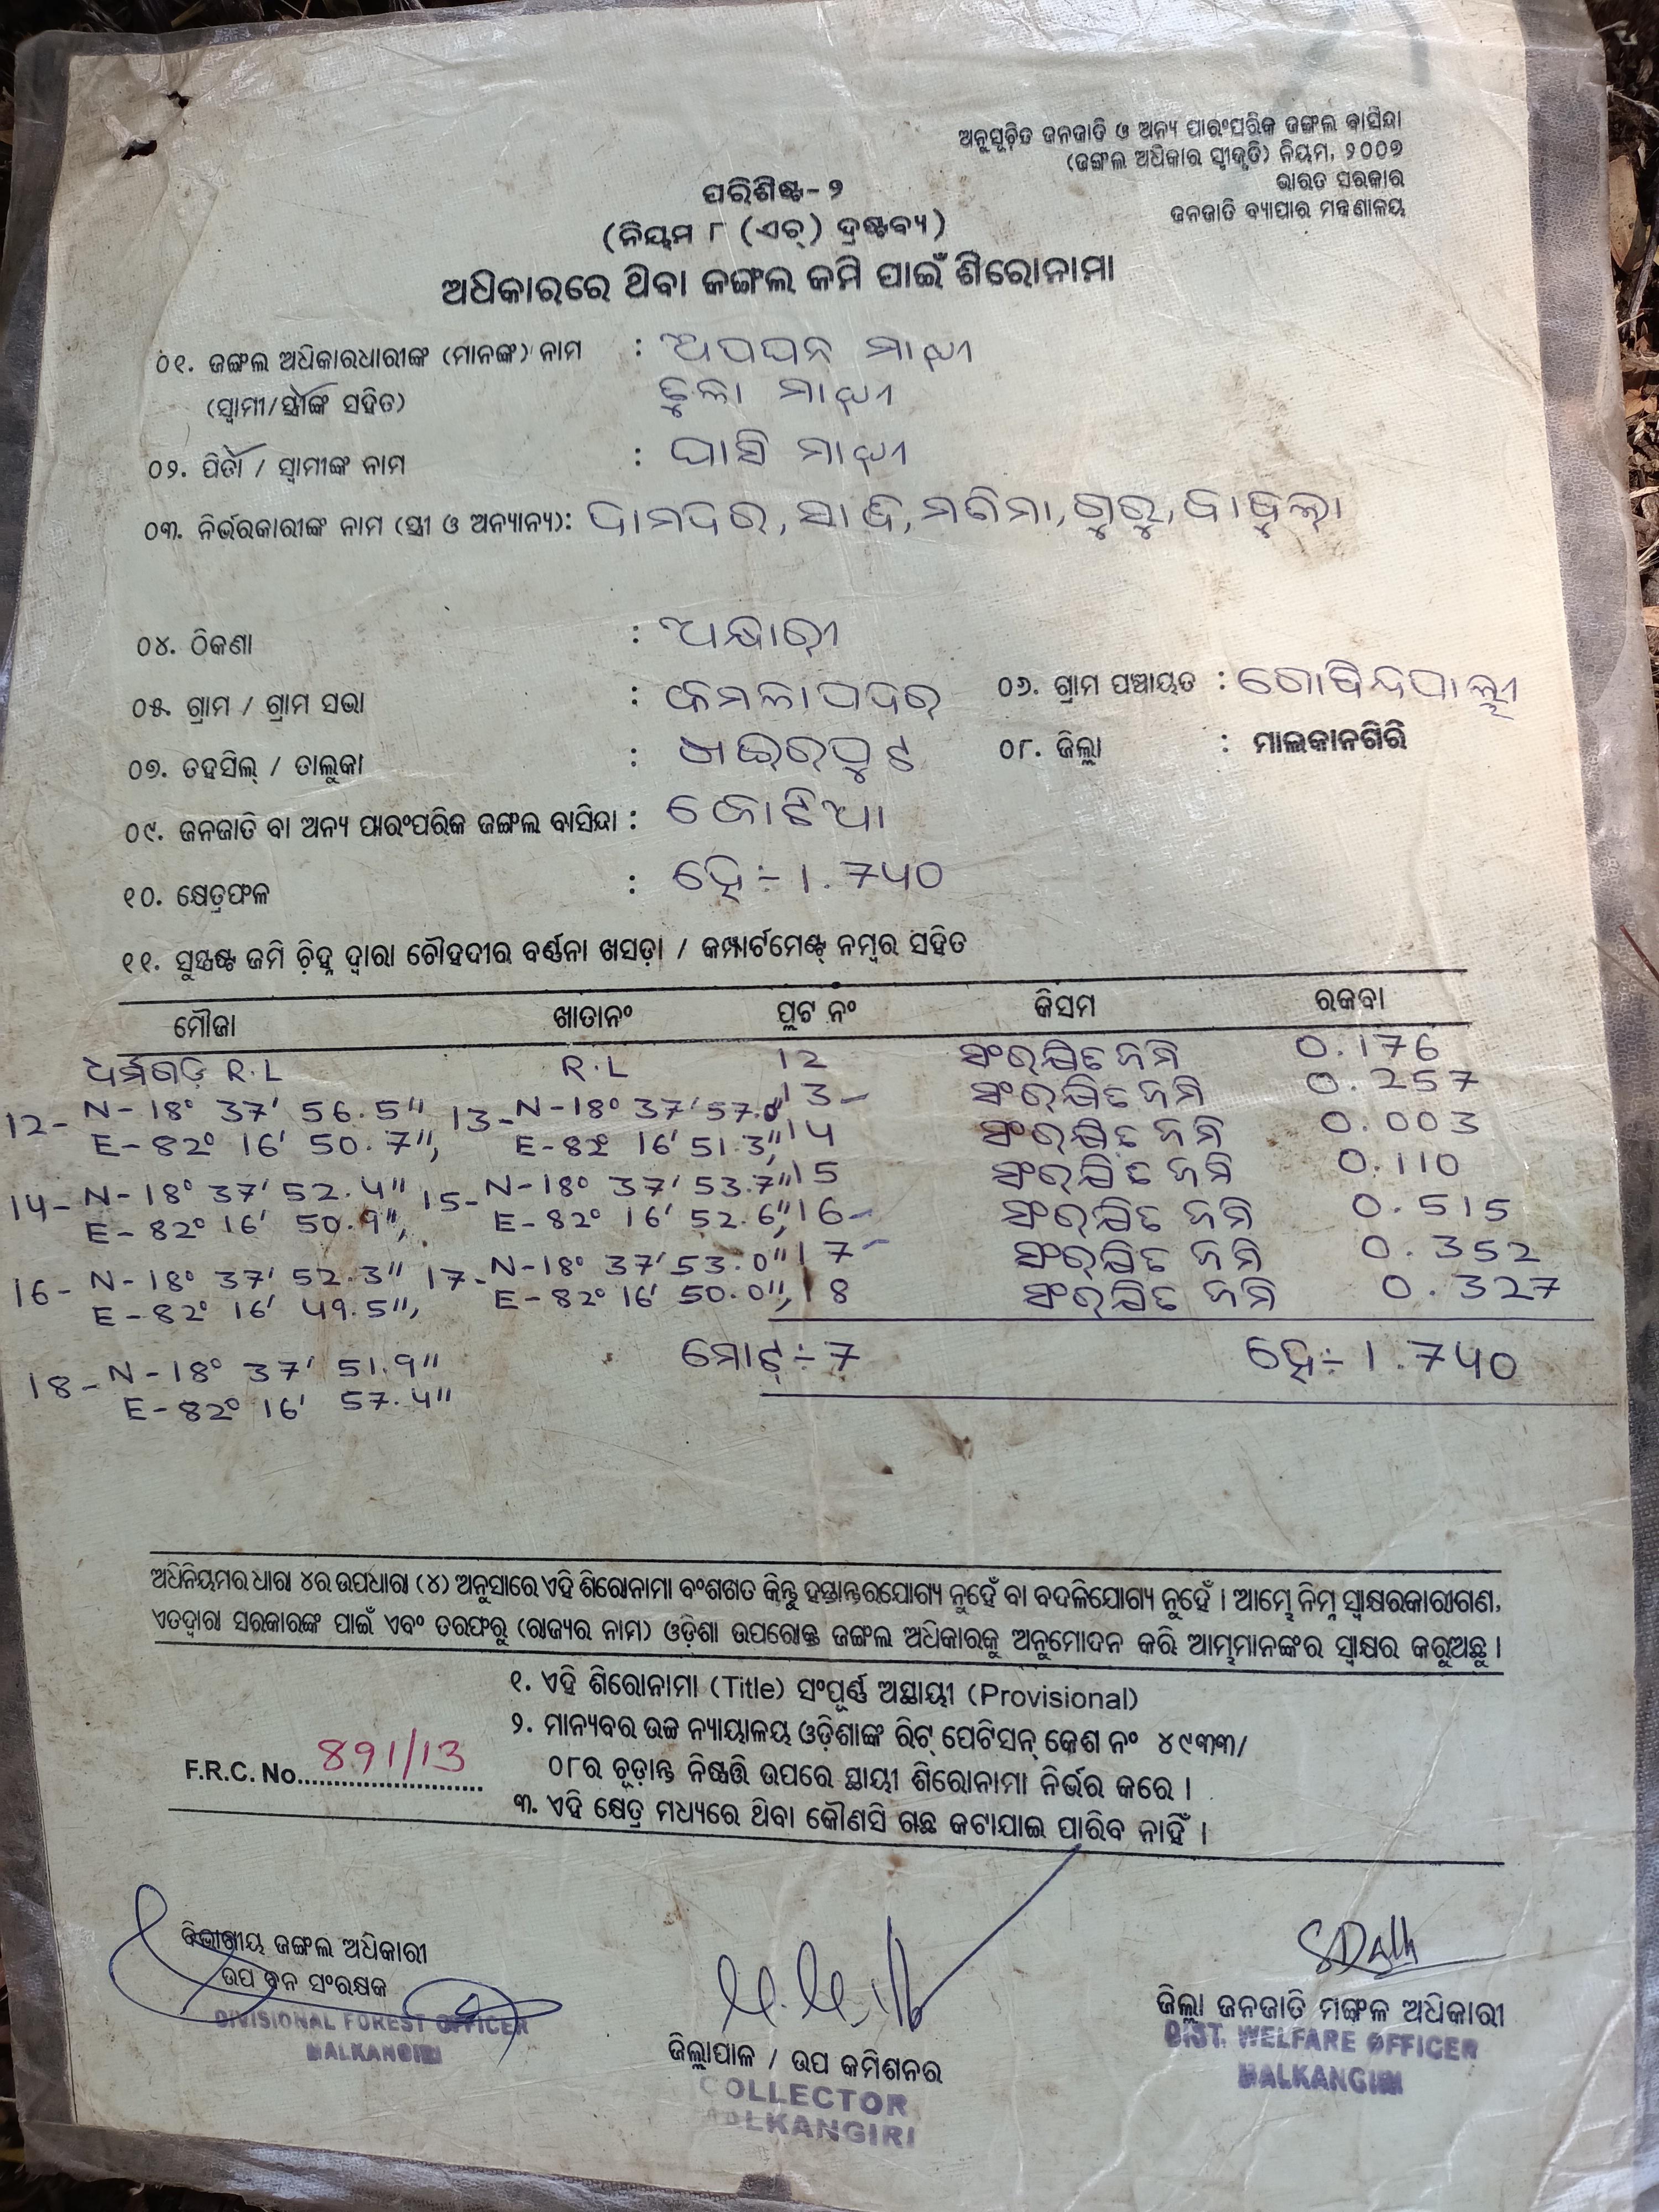 ଅନୁସୂଚିତ ଜନଜାତି ଓ ଅନ୍ୟ ପାରଂପରିକ ଜଙ୍ଗଲ ବାସିନ୍ଦା
(ଜଙ୍ଗଲ ଅଧିକାର ସ୍ୱୀକୃତି) ନିୟମ, ୨୦୦୭
ଭାରତ ସରକାର
ଜନଜାତି ବ୍ୟାପାର ମନ୍ତ୍ରଣାଳୟ
ପରିଶିଷ୍ଟ-୨
(ନିୟମ ୮ (ଏଚ୍) ଦ୍ରଷ୍ଟବ୍ୟ)
ଅଧିକାରରେ ଥିବା ଜଙ୍ଗଲ ଜମି ପାଇଁ ଶିରୋନାମା
୦୧. ଜଙ୍ଗଲ ଅଧିକାରଧାରୀଙ୍କ (ମାନଙ୍କ) ନାମ : ମାଝୀ
(ସ୍ୱାମୀ/ସ୍ତ୍ରୀଙ୍କ ସହିତ) ଟୁଳା ମାଝୀ
୦୨. ପିତା / ସ୍ୱାମୀଙ୍କ ନାମ : ଘାସି ମାଝୀ
୦୩. ନିର୍ଭରକାରୀଙ୍କ ନାମ (ସ୍ତ୍ରୀ ଓ ଅନ୍ୟାନ୍ୟ): ଦାମଦର, ଗୁରୁ,
୦୪. ଠିକଣା : ଅନ୍ଧାରୀ
୦୫. ଗ୍ରାମ / ଗ୍ରାମ ସଭା : କମଳାପଦର ୦୬. ଗ୍ରାମ ପଞ୍ଚାୟତ : ଗୋବିନ୍ଦପାଲ୍ଲୀ
୦୭. ତହସିଲ୍ / ତାଲୁକା : ଖଇରପୁଟ ୦୮. ଜିଲ୍ଲା : ମାଲକାନଗିରି
୦୯. ଜନଜାତି ବା ଅନ୍ୟ ପାରଂପରିକ ଜଙ୍ଗଲ ବାସିନ୍ଦା :
୧୦. କ୍ଷେତ୍ରଫଳ : ହେ÷ 1.740
୧୧. ସୁସ୍ପଷ୍ଟ ଜମି ଚିହ୍ନ ଦ୍ୱାରା ଚୌହଦୀର ବର୍ଣ୍ଣନା ଖସଡ଼ା / କମ୍ପାର୍ଟମେଣ୍ଟ୍ ନମ୍ବର ସହିତ
ମୌଜା ଖାତାନଂ ପ୍ଲଟ ନଂ କିସମ ରକବା
ଧର୍ମଗଡ଼ି R.L R.L 12 ସଂରକ୍ଷିତ ଜମି 0.176
12- N-18° 37' 56.5" 13- N-18° 37' 57.0" 13- ସଂରକ୍ଷିତ ଜମି 0.257
E-82° 16' 50.7", E-82° 16' 51.3", 14 ସଂରକ୍ଷିତ ଜମି 0.003
14- N-18° 37' 52.4" 15- N-18° 37' 53.7" 15 ସଂରକ୍ଷିତ ଜମି 0.110
E-82° 16' 50.9", E-82° 16' 52.6", 16- ସଂରକ୍ଷିତ ଜମି 0.515
16- N-18° 37' 52.3" 17- N-18° 37' 53.0" 17- ସଂରକ୍ଷିତ ଜମି 0.352
E-82° 16' 49.5", E-82° 16' 50.0", 18 ସଂରକ୍ଷିତ ଜମି 0.327
18- N-18° 37' 51.9" ମୋଟ୍÷ 7 ହେ÷ 1.740
E-82° 16' 57.4"
ଅଧିନିୟମର ଧାରା ୪ର ଉପଧାରା (୪) ଅନୁସାରେ ଏହି ଶିରୋନାମା ବଂଶଗତ କିନ୍ତୁ ହସ୍ତାନ୍ତରଯୋଗ୍ୟ ନୁହେଁ ବା ବଦଳିଯୋଗ୍ୟ ନୁହେଁ । ଆମ୍ଭେ ନିମ୍ନ ସ୍ୱାକ୍ଷରକାରୀଗଣ,
ଏତଦ୍ଦ୍ୱାରା ସରକାରଙ୍କ ପାଇଁ ଏବଂ ତରଫରୁ (ରାଜ୍ୟର ନାମ) ଓଡ଼ିଶା ଉପରୋକ୍ତ ଜଙ୍ଗଲ ଅଧିକାରକୁ ଅନୁମୋଦନ କରି ଆମ୍ଭମାନଙ୍କର ସ୍ୱାକ୍ଷର କରୁଅଛୁ ।
୧. ଏହି ଶିରୋନାମା (Title) ସଂପୂର୍ଣ୍ଣ ଅସ୍ଥାୟୀ (Provisional)
୨. ମାନ୍ୟବର ଉଚ୍ଚ ନ୍ୟାୟାଳୟ ଓଡ଼ିଶାଙ୍କ ରିଟ୍ ପେଟିସନ୍ କେଶ ନଂ ୪୯୩୩/
୦୮ର ଚୂଡ଼ାନ୍ତ ନିଷ୍ପତ୍ତି ଉପରେ ସ୍ଥାୟୀ ଶିରୋନାମା ନିର୍ଭର କରେ ।
F.R.C. No. 891/13
୩. ଏହି କ୍ଷେତ୍ର ମଧ୍ୟରେ ଥିବା କୌଣସି ଗଛ କଟାଯାଇ ପାରିବ ନାହିଁ ।
ବିଭାଗୀୟ ଜଙ୍ଗଲ ଅଧିକାରୀ
ଉପ ବନ ସଂରକ୍ଷକ
DIVISIONAL FOREST OFFICER
MALKANGIRI
ଜିଲ୍ଲାପାଳ / ଉପ କମିଶନର
COLLECTOR
MALKANGIRI
ଜିଲ୍ଲା ଜନଜାତି ମଙ୍ଗଳ ଅଧିକାରୀ
DIST. WELFARE OFFICER
MALKANGIRI